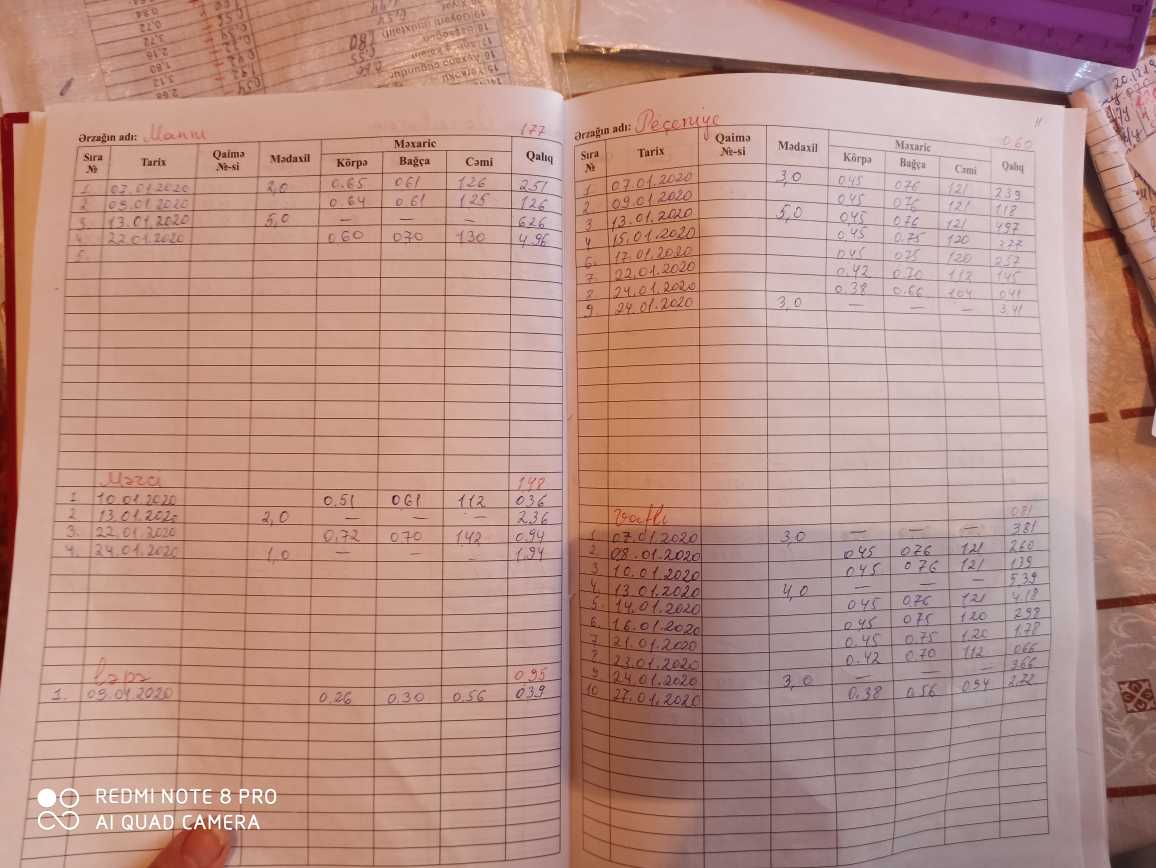 Ərzağın adı: Mannı 177
Sıra № Tarix Qaimə №-si Mədaxil Məxaric Qalıq
Körpə Bağça Cəmi
1 07.01.2020 2,0 0.65 061 126 251
2 09.01.2020 0.64 0.61 125 126
3. 13.01.2020 5,0 — — — 626
4. 22.01.2020 060 070 130 4.96
5.
Mərci 148
1 10.01.2020 0,51 061 112 036
2 13.01.2020 2,0 — — — 236
3. 22.01.2020 0,72 070 142 0.94
4. 24.01.2020 1,0 — — — 1.94
0,95
1. 09.01.2020 0,26 0.30 0.56 039
11
Ərzağın adı: Peçeniye 0.60
Sıra № Tarix Qaimə №-si Mədaxil Məxaric Qalıq
Körpə Bağça Cəmi
1 07.01.2020 3,0 045 076 121 239
2 09.01.2020 045 076 121 118
3 13.01.2020 5,0 045 076 121 497
4 15.01.2020 0,45 0.75 120
6. 17.01.2020 045 075 120 257
7. 22.01.2020 0,42 0.70 112 145
8 24.01.2020 0.38 0.66 104 041
9 24.01.2020 3,0 — — — 3,41
Vafli 081
1 07.01.2020 3,0 — — — 381
2. 08.01.2020 045 076 121 260
3. 10.01.2020 045 076 121 139
4. 13.01.2020 4,0 — — — 5,39
5. 14.01.2020 045 076 121 4.18
6. 16.01.2020 045 075 120 298
7 21.01.2020 0.45 0.75 120 178
8 23.01.2020 0.42 0.70 112 066
9 24.01.2020 3,0 — — — 366
10 27.01.2020 0.38 0.56 094 2.72
REDMI NOTE 8 PRO
AI QUAD CAMERA